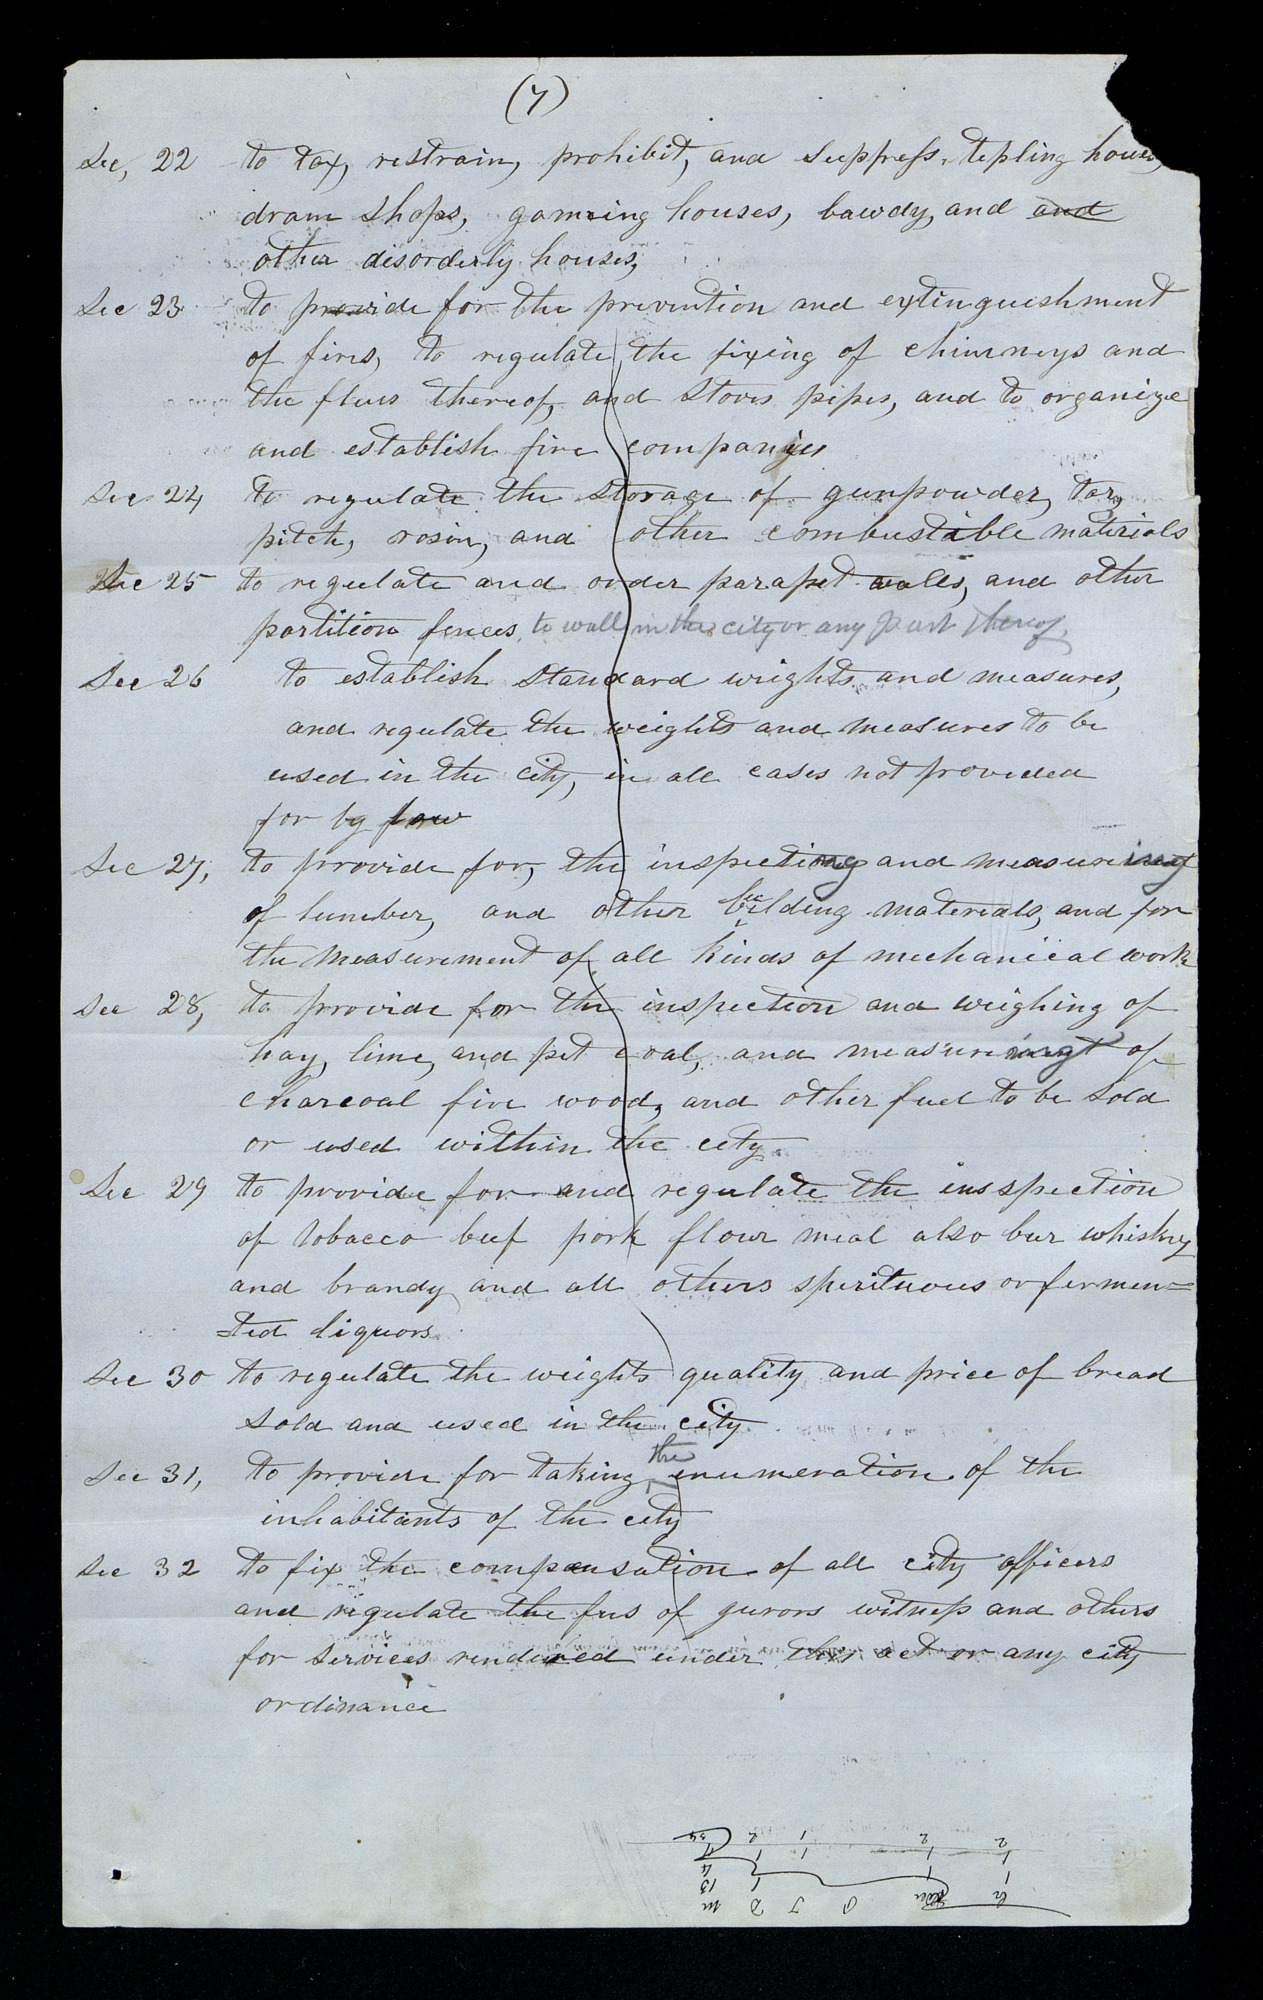 (7)
Sec, 22 to tax, restrain, prohibit, and suppress, tipling houses,
dram shops, gameing houses, bawdy, and and
other disorderly houses,
Sec 23 to provide for the prevention and extinguishment
of fires, to regulate the fixing of chimneys and
the flues thereof, and stoves pipes, and to organize
and establish fire companies
Sec 24 to regulate the storage of gunpowder, tar,
pitch, rosin, and other combustable materials
Sec 25 to regulate and order parapet walls, and other
partition fences, to wall in the city or any part thereof,
Sec 26 to establish standard weights and measures,
and regulate the weights and measures to be
used in the city, in all cases not provided
for by law
Sec 27, to provide for, the inspecting and measureing
of lumber, and other building materials, and for
the measurement of all kinds of mechanical work
Sec 28, to provide for the inspection and weighing of
hay, lime, and pit coal, and measureing of
charcoal fire wood, and other fuel to be sold
or used within the city
Sec 29 to provide for and regulate the insspection
of tobacco beef pork flour meal also beer whiskey
and brandy and all others spirituous or fermen=
ted liquors
Sec 30 to regulate the weights quality and price of bread
sold and used in the city
the
Sec 31, to provide for taking enumeration of the
inhabitants of the city
Sec 32 to fix the compensation of all city officers
and regulate the fees of jurors witness and others
for services rendered under this act or any city
ordinance